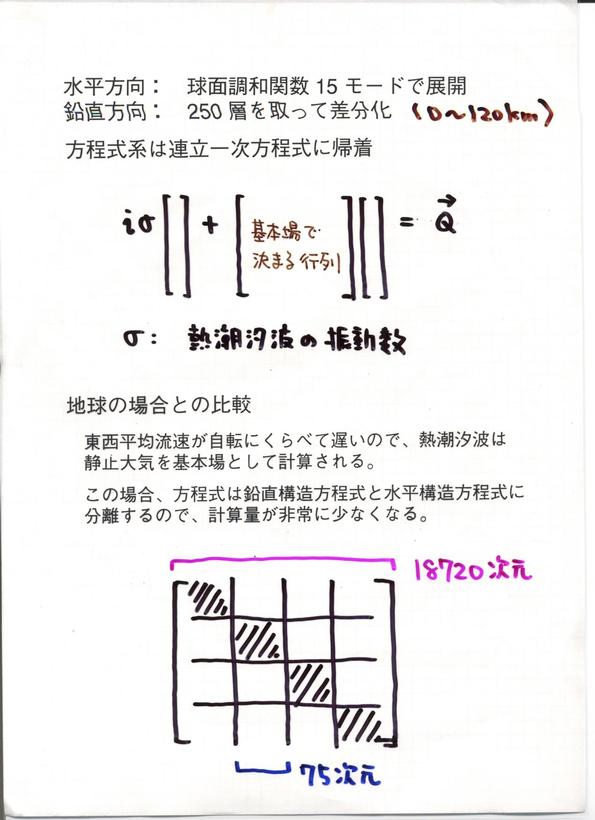 水平方向： 球面調和関数 15 モードで展開
鉛直方向： 250 層を取って差分化 (0〜120km)
方程式系は連立一次方程式に帰着
iσ[ ] + [基本場で
決まる行列][ ] = Q⃗
σ: 熱潮汐波の振動数
地球の場合との比較
東西平均流速が自転にくらべて遅いので、熱潮汐波は
静止大気を基本場として計算される。
この場合、方程式は鉛直構造方程式と水平構造方程式に
分離するので、計算量が非常に少なくなる。
18720次元
75次元